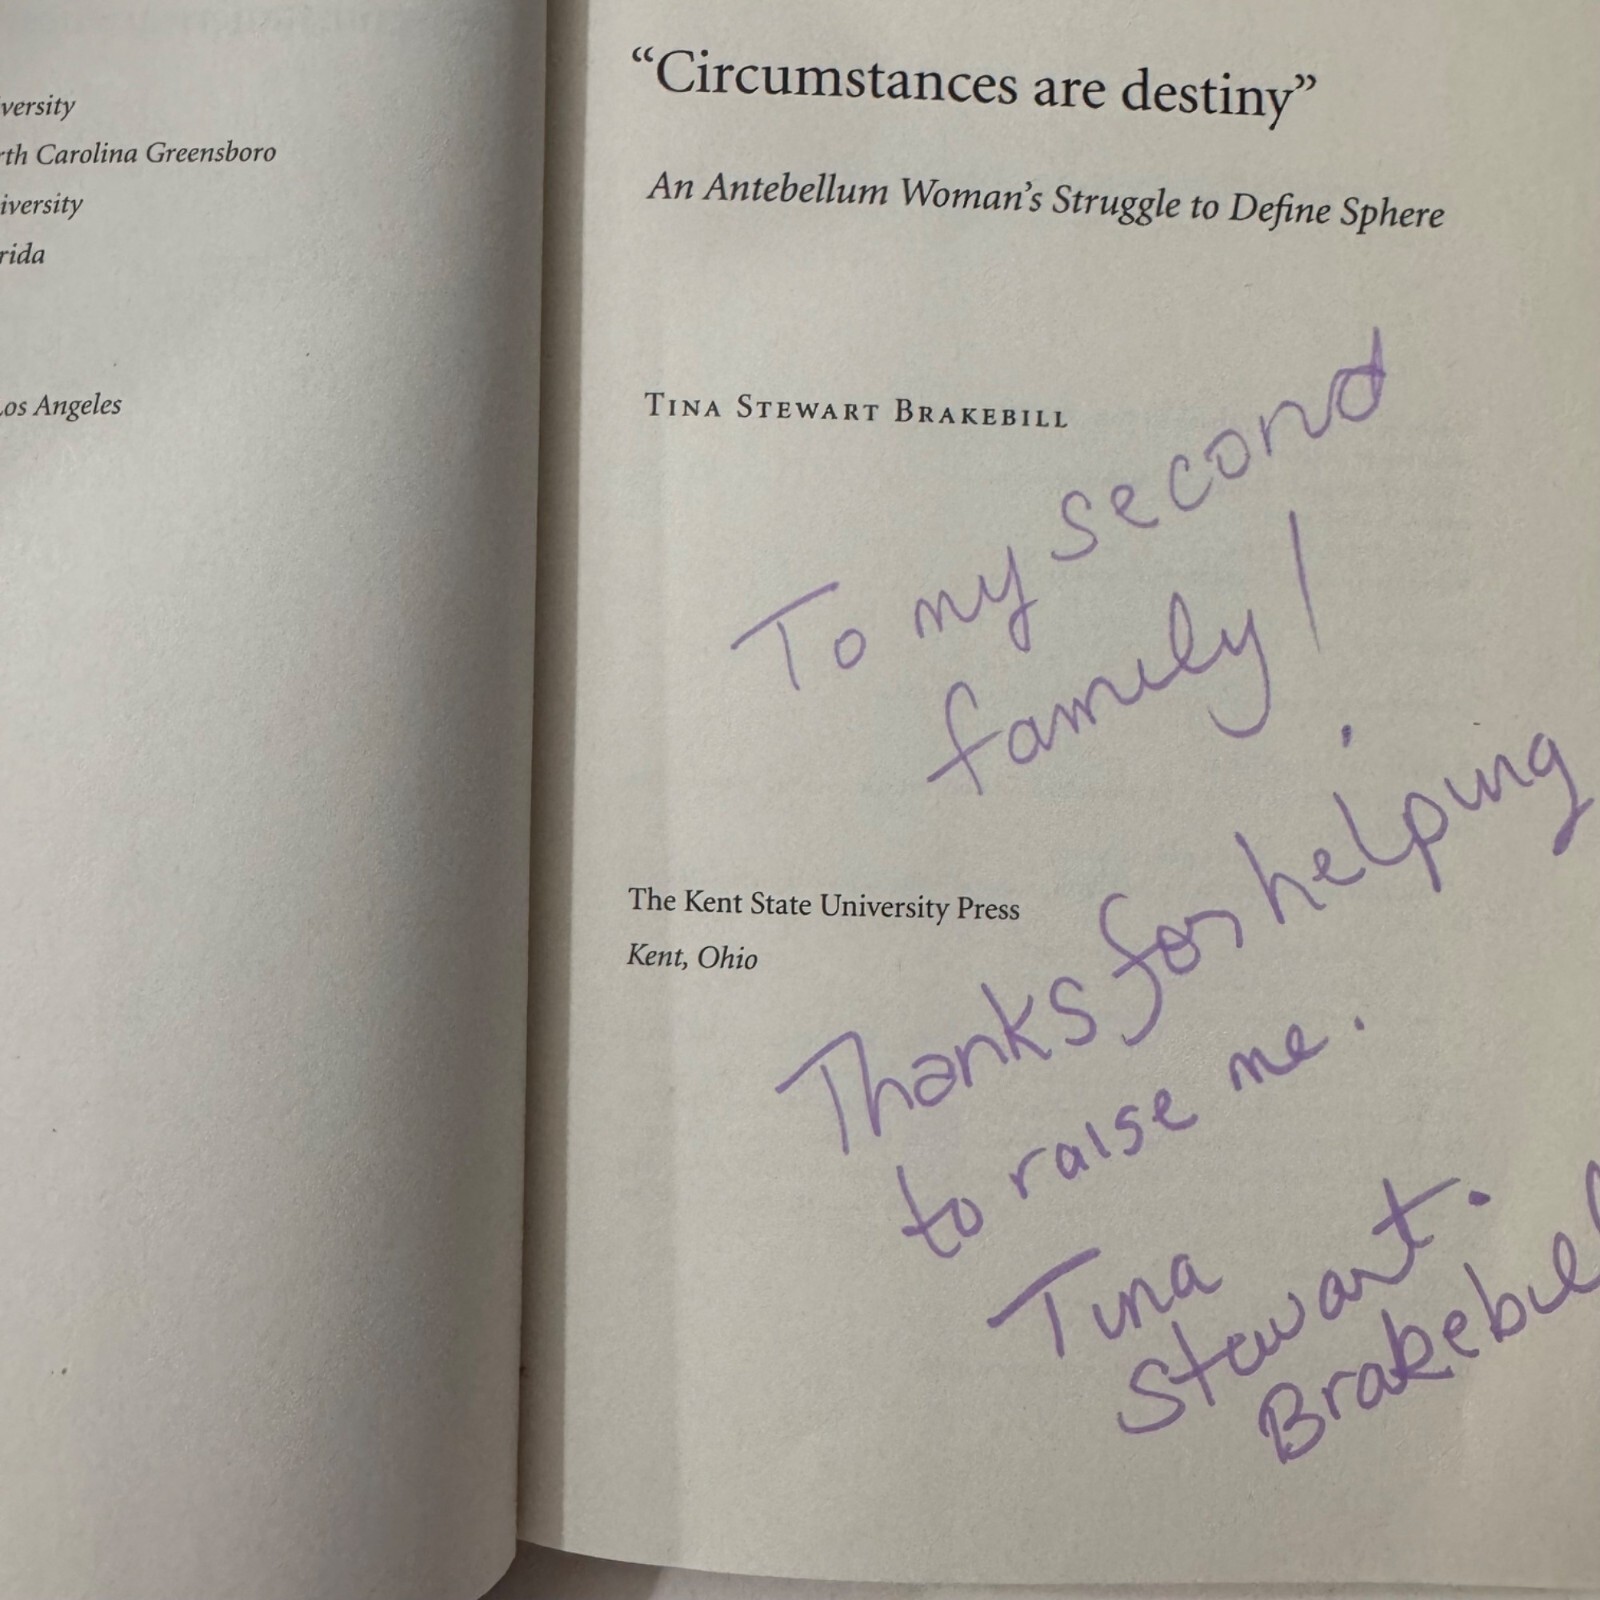 versity
rth Carolina Greensboro
iversity
rida
Los Angeles
“Circumstances are destiny”
An Antebellum Woman’s Struggle to Define Sphere
Tina Stewart Brakebill
To my second
family!
The Kent State University Press
Kent, Ohio
Thanks for helping
to raise me.
Tina
Stewart.
Brakebill